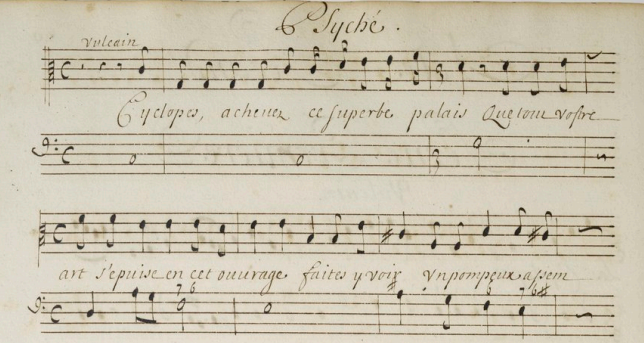 Psyché.
vulcain
Cyclopes, achevez ce superbe palais Que tout vostre
art s'epuise en cet ouvrage faites y voir vn pompeux assem
7 6 6 7 6#